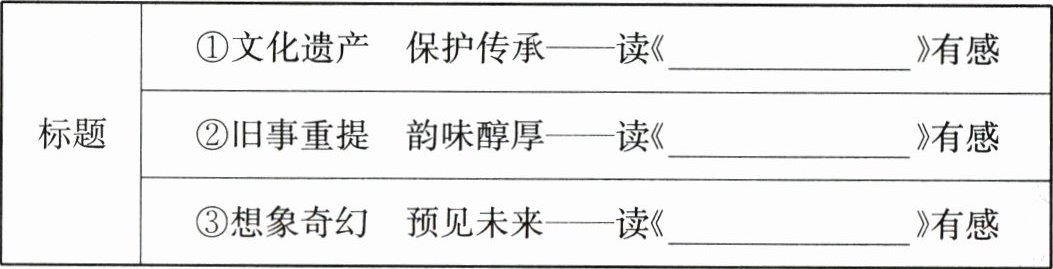 ①文化遗产 保护传承——读《____________》有感
标题
②旧事重提 韵味醇厚——读《____________》有感
③想象奇幻 预见未来——读《____________》有感